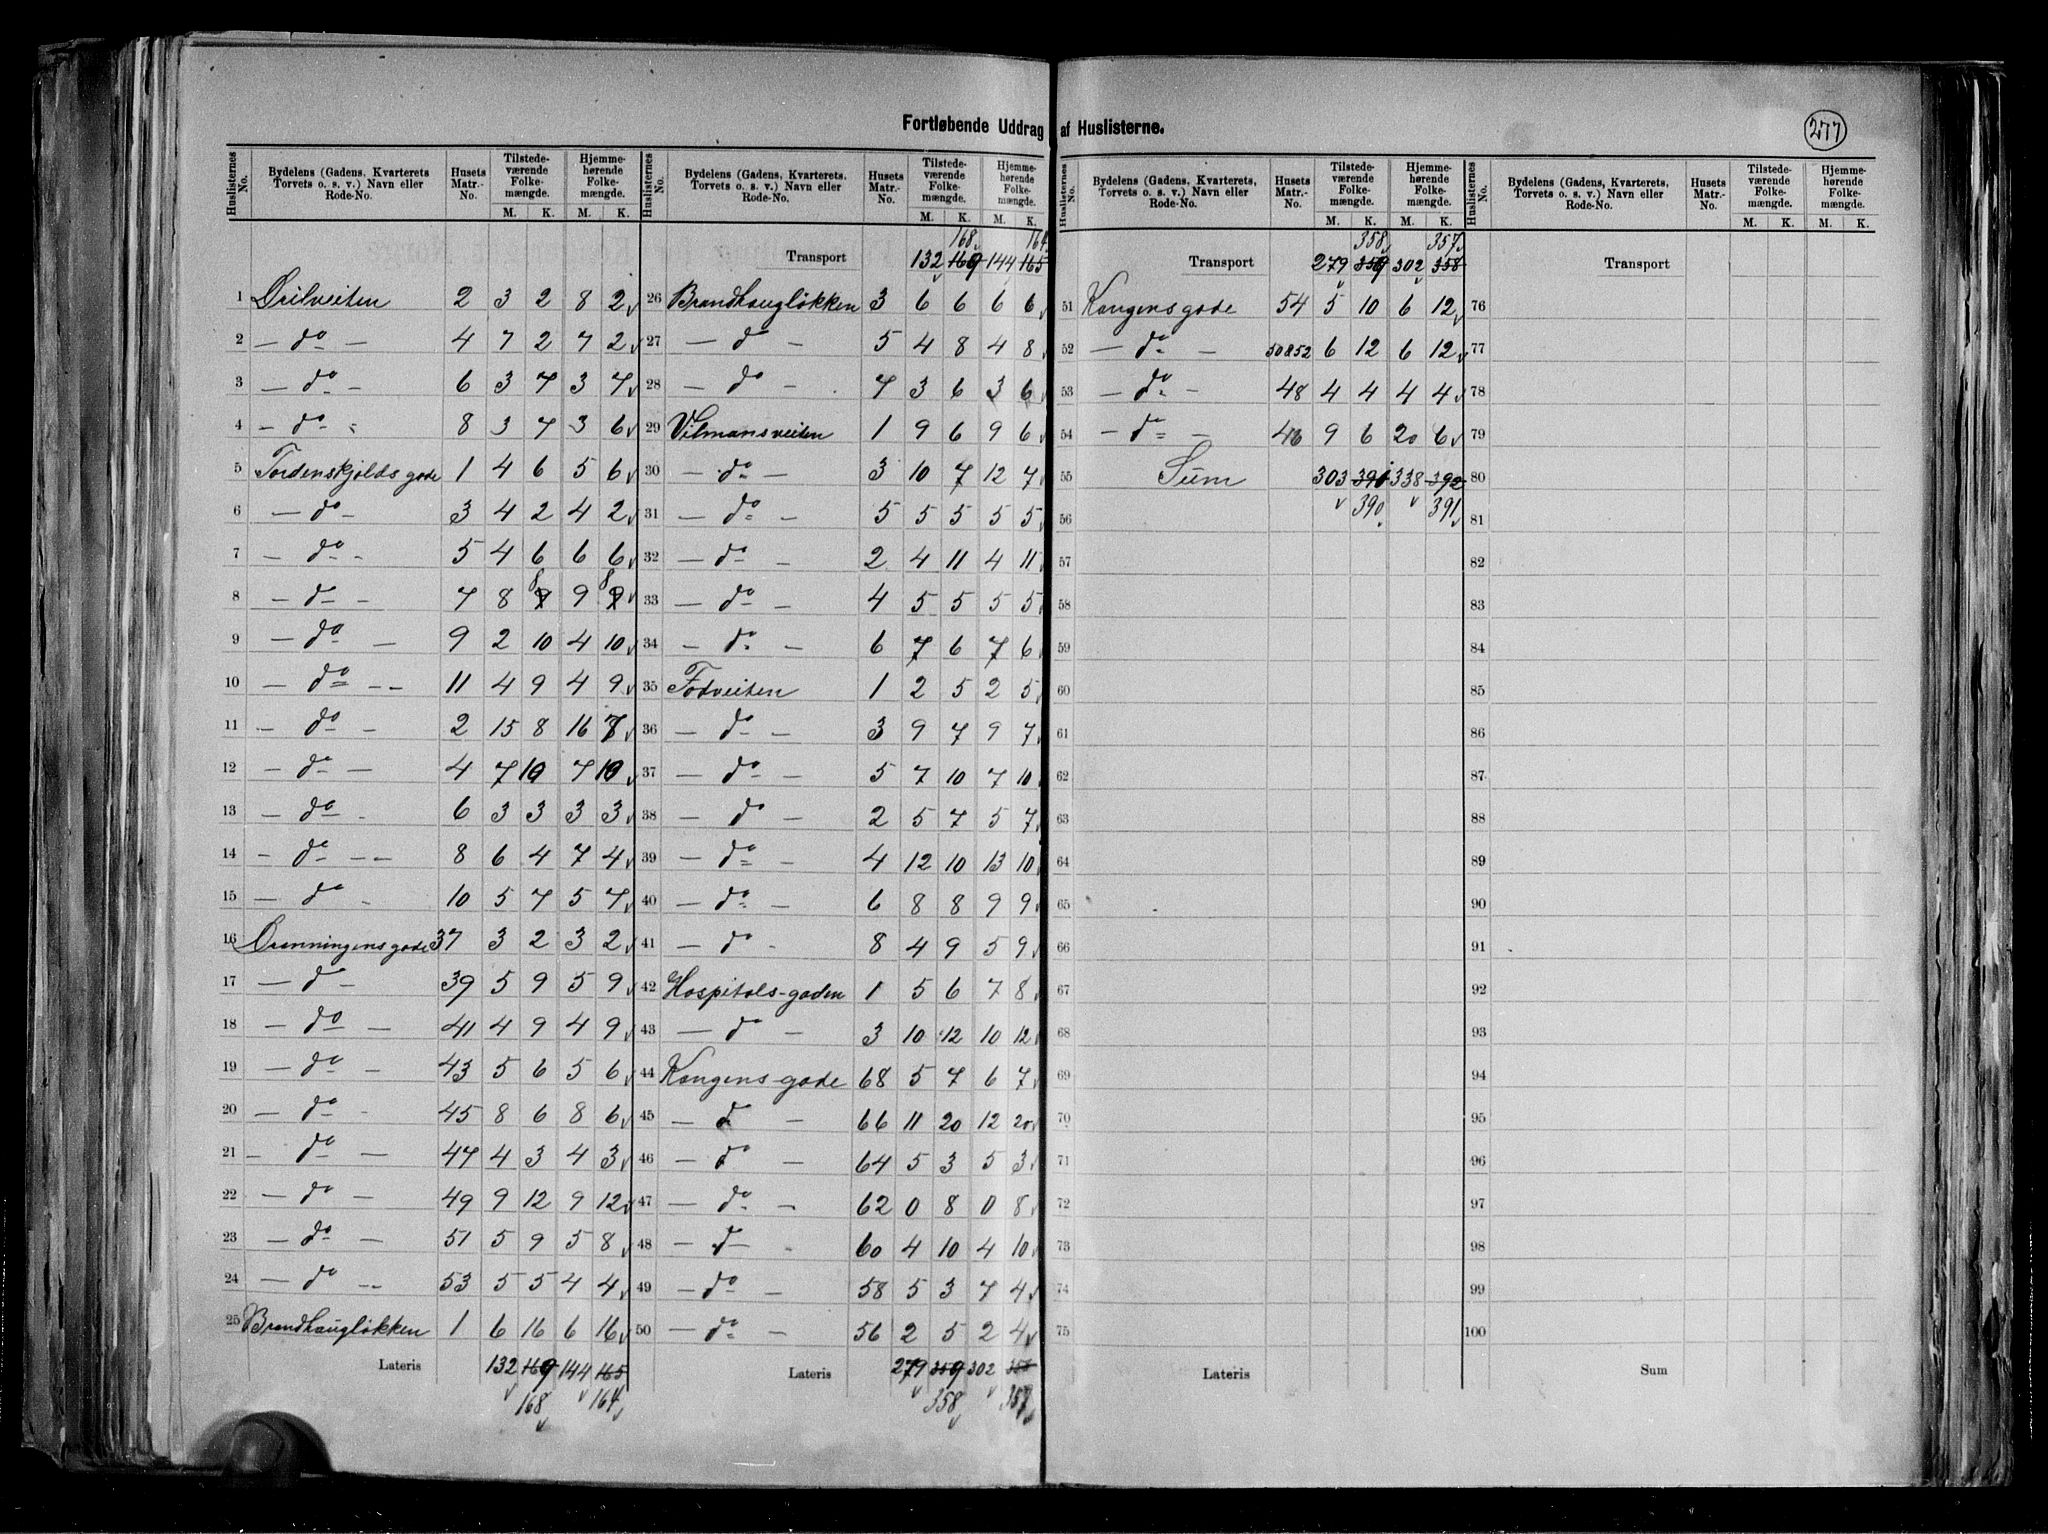 Fortløbende Uddrag af Huslisterne.
277
Huslisternes No. Bydelens (Gadens, Kvarterets Torvets o. s. v.) Navn eller Rode-No. Husets Matr.-No. Tilstedeværende Folkemængde. M. K. Hjemmehørende Folkemængde. M. K.
1 Örilveiten 2 3 2 8 2
2 — do — 4 7 2 7 2
3 — do - 6 3 7 3 7
4 — do - 8 3 7 3 6
5 Tordenskjolds gade 1 4 6 5 6
6 — do - 3 4 2 4 2
7 — do - 5 4 6 6 6
8 — do — 7 8 8 9 8
9 — do — 9 2 10 4 10
10 — do — 11 4 9 4 9
11 — do — 2 15 8 16 7
12 — do — 4 7 10 7 10
13 — do - 6 3 3 3 3
14 — do — 8 6 4 7 4
15 — do - 10 5 7 5 7
16 Dronningens gade 37 3 2 3 2
17 — do - 39 5 9 5 9
18 — do — 41 4 9 4 9
19 — do — 43 5 6 5 6
20 — do - 45 8 6 8 6
21 — do — 47 4 3 4 3
22 — do — 49 9 12 9 12
23 — do — 51 5 9 5 8
24 — do — 53 5 5 4 4
25 Brandhaugløkken 1 6 16 6 16
Lateris 132 169 144 165
168 164
Huslisternes No. Bydelens (Gadens, Kvarterets, Torvets o. s. v.) Navn eller Rode-No. Husets Matr.-No. Tilstedeværende Folkemængde. M. K. Hjemmehørende Folkemængde. M. K.
168 164
Transport 132 169 144 165
26 Brandhaugløkken 3 6 6 6 6
27 — do — 5 4 8 4 8
28 — do — 7 3 6 3 6
29 Vilmansveiten 1 9 6 9 6
30 — do — 3 10 7 12 7
31 — do — 5 5 5 5 5
32 — do — 2 4 11 4 11
33 — do — 4 5 5 5 5
34 — do — 6 7 6 7 6
35 Fodveiten 1 2 5 2 5
36 — do — 3 9 7 9 7
37 — do — 5 7 10 7 10
38 — do — 2 5 7 5 7
39 — do — 4 12 10 13 10
40 — do — 6 8 8 9 9
41 — do - 8 4 9 5 9
42 Hospitals-gaden 1 5 6 7 8
43 — do — 3 10 12 10 12
44 Kongens-gade 68 5 7 6 7
45 — do — 66 11 20 12 20
46 — do — 64 5 3 5 3
47 — do — 62 0 8 0 8
48 — do - 60 4 10 4 10
49 — do — 58 5 3 7 4
50 — do — 56 2 5 2 4
Lateris 279 359 302 358
358 357
Huslisternes No. Bydelens (Gadens, Kvarterets, Torvets o. s. v.) Navn eller Rode-No. Husets Matr.-No. Tilstedeværende Folkemængde. M. K. Hjemmehørende Folkemængde. M. K.
358 357
Transport 279 359 302 358
51 Kongens gade 54 5 10 6 12
52 — do — 50&52 6 12 6 12
53 — do — 48 4 4 4 4
54 — do — 46 9 6 20 6
55 Sum 303 391 338 392
56 390 391
57
58
59
60
61
62
63
64
65
66
67
68
69
70
71
72
73
74
75
Lateris
Huslisternes No. Bydelens (Gadens, Kvarterets, Torvets o. s. v.) Navn eller Rode-No. Husets Matr.-No. Tilstedeværende Folkemængde. M. K. Hjemmehørende Folkemængde. M. K.
Transport
76
77
78
79
80
81
82
83
84
85
86
87
88
89
90
91
92
93
94
95
96
97
98
99
100
Sum